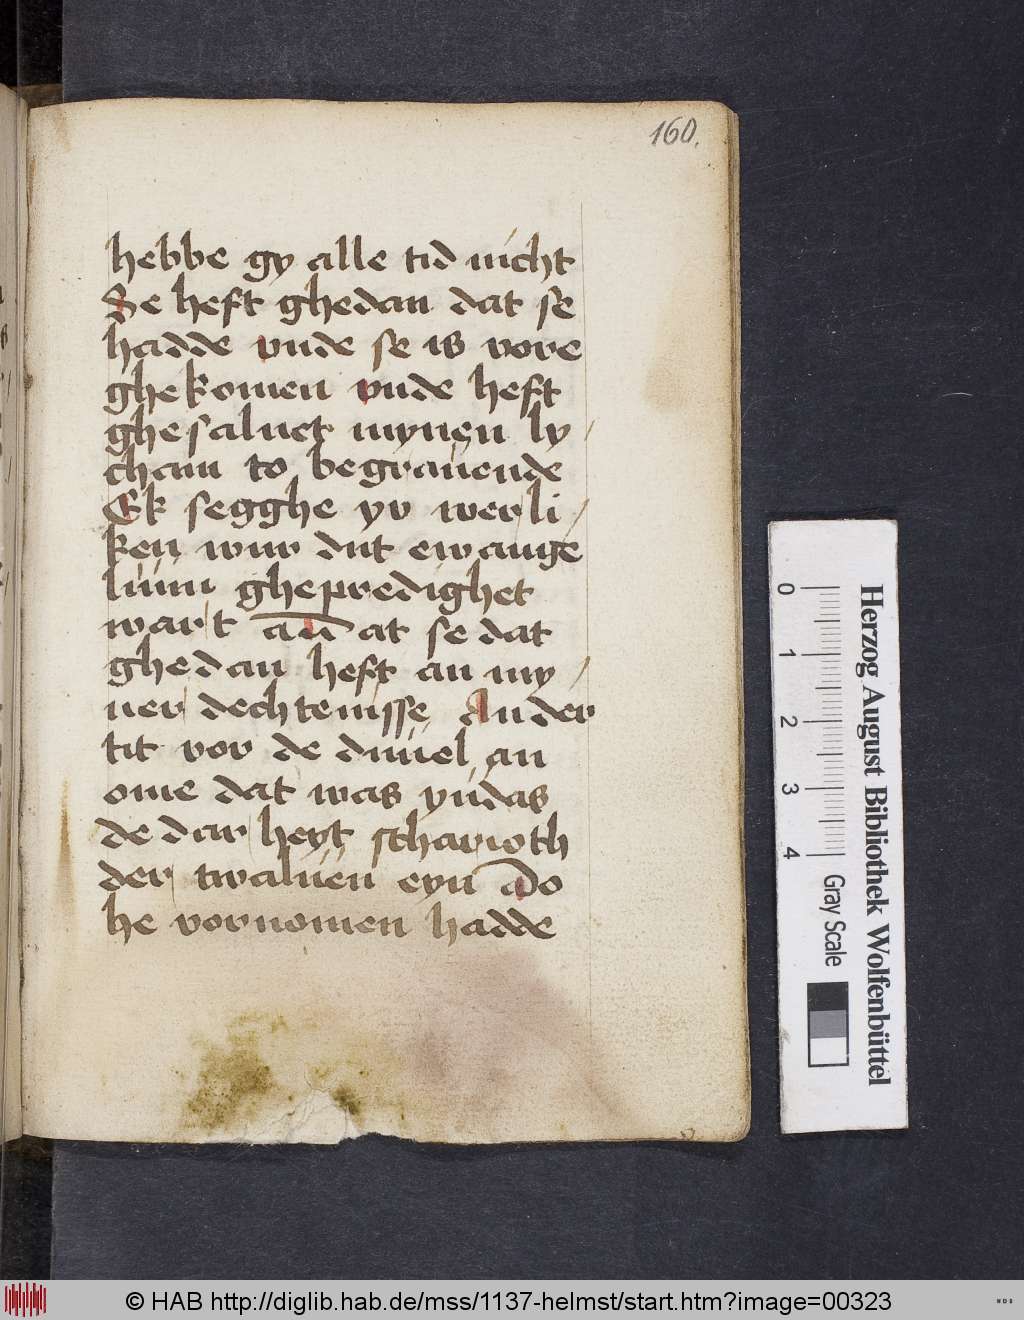 160.
hebbe gy alle tid nicht
Se heft ghedan dat se
hadde vnde se is vore
ghekomen vnde heft
ghesaluet mynen ly
cham to begrauende
Ek segghe yv werli
ken wur dut ewange
lium ghepredighet
wart an at se dat
ghedan heft an my
ner dechtenisse An der
tit vor de duuel an
ome dat was yudas
de dar heyt scharioth
der twaluen eyn Do
he vornomen hadde
0 1 2 3 4
Gray Scale
Herzog August Bibliothek Wolfenbüttel
© HAB http://diglib.hab.de/mss/1137-helmst/start.htm?image=00323